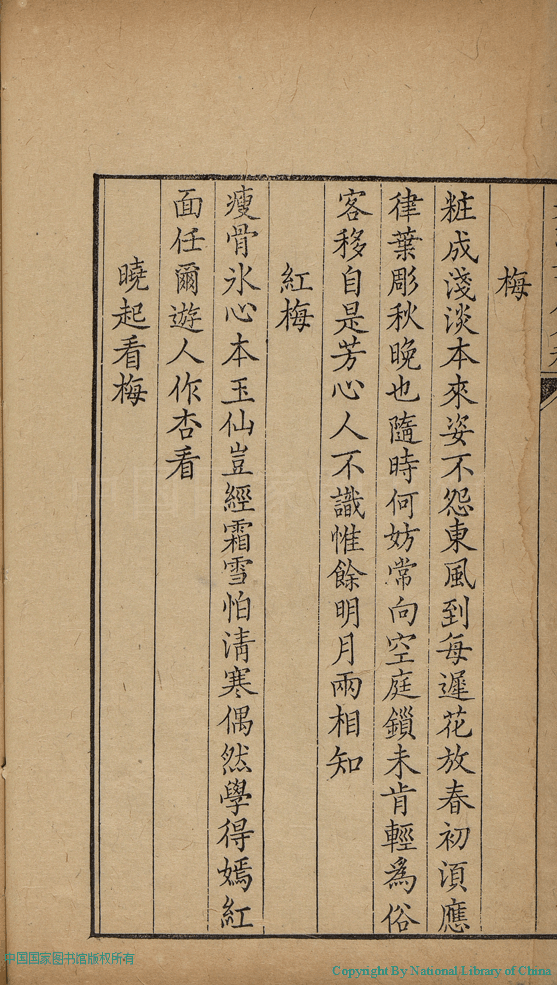 梅
粧成淺淡本來姿不怨東風到每遲花放春初湏應
律葉彫秋晚也隨時何妨常向空庭鎖未肯輕為俗
客移自是芳心人不識惟餘明月兩相知
紅梅
瘦骨氷心本玉仙豈經霜雪怕淸寒偶然學得嫣紅
面任爾遊人作杏看
曉起看梅
中国国家图书馆版权所有
Copyright By National Library of China